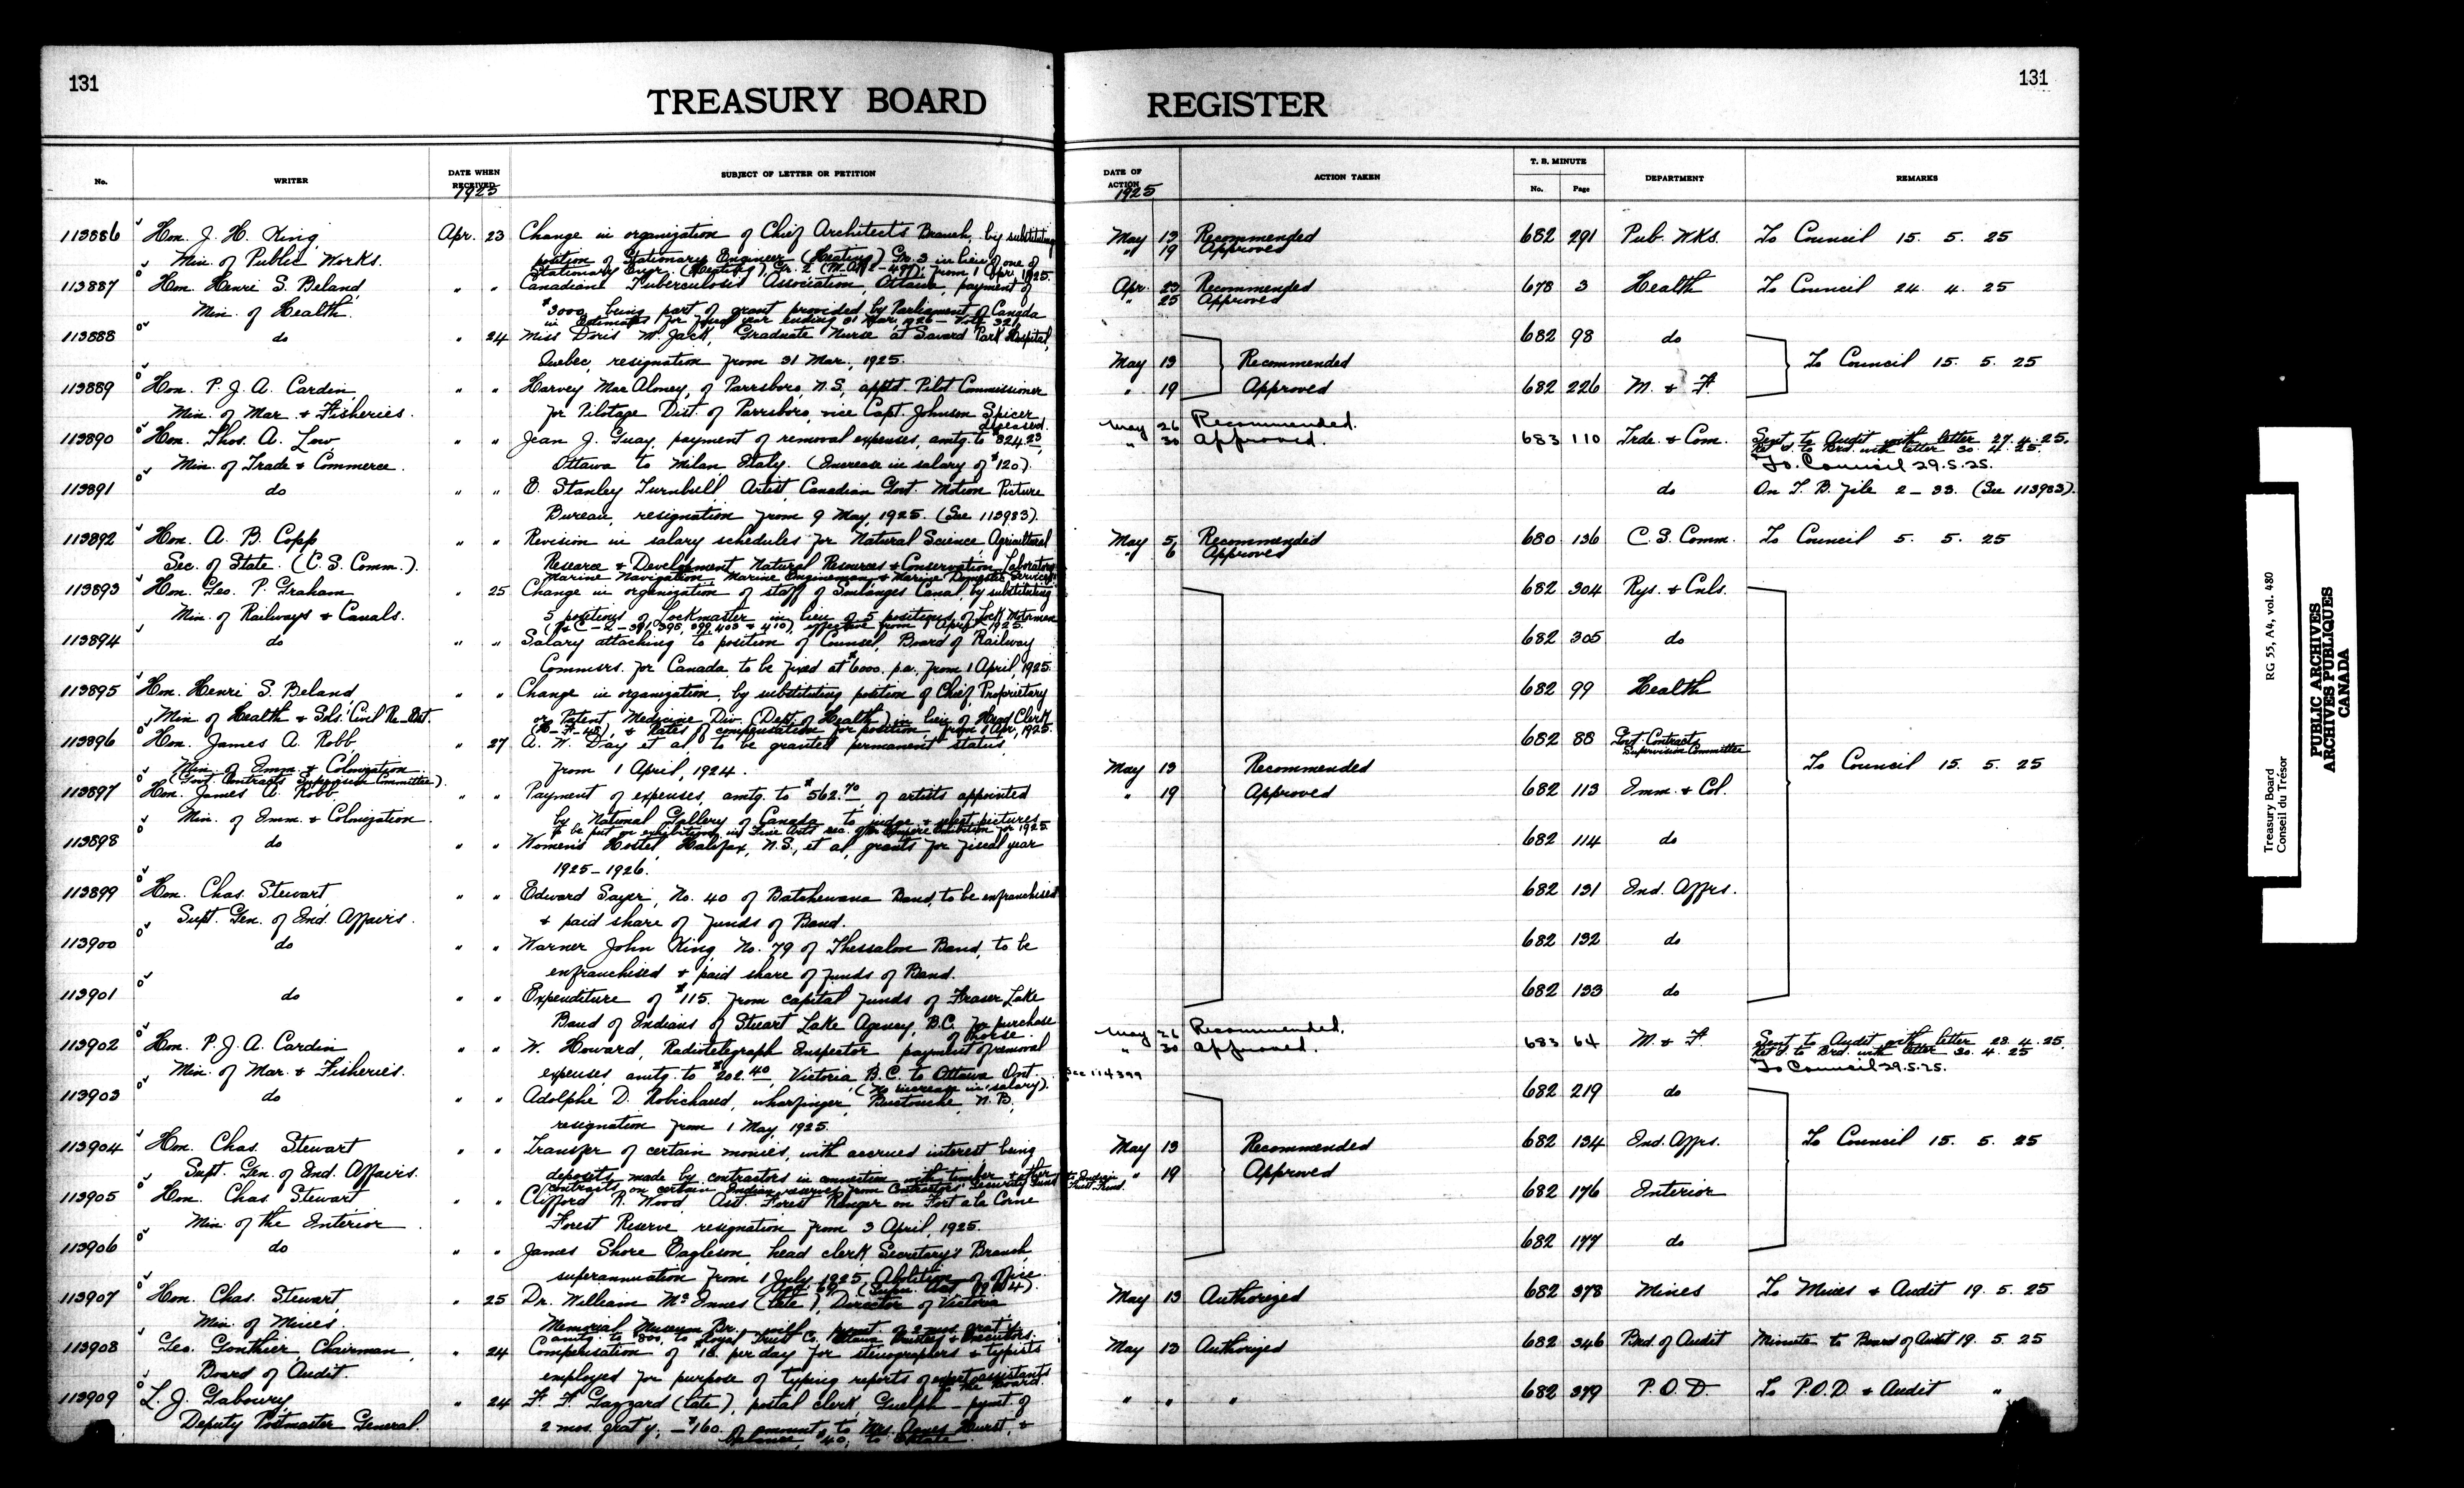 131
TREASURY BOARD
REGISTER
131
No.
WRITER
DATE WHEN RECEIVED
1925
SUBJECT OF LETTER OR PETITION
DATE OF ACTION
1925
ACTION TAKEN
T. B. MINUTE
No.
Page
DEPARTMENT
REMARKS
113886 Hon. J. H. King, Apr. 23 Change in organization of Chief Architect's Branch, by substituting May 13 Recommended 682 291 Pub. Wks. To Council 15. 5. 25
" 19 Approved
Min. of Public Works. position of Stationary Engineer (Heating) Gr. 3 in lieu of one of
Stationary Engr. (Heating), Gr. 2 from 1 Apr. 1925.
113887 Hon. Henri S. Beland, " " Canadian Tuberculosis Association, Ottawa, payment of Apr. 23 Recommended 678 3 Health To Council 24. 4. 25
" 25 Approved
Min. of Health. $3000 being part of grant provided by Parliament of Canada
in Estimates for fiscal year ending 31 Mar. 1926 - Vote 321
113888 do " 24 Miss Doris M. Jack, Graduate Nurse at Savard Park Hospital, 682 98 do
Quebec, resignation from 31 Mar., 1925. May 13 Recommended To Council 15. 5. 25
113889 Hon. P. J. A. Cardin, " " Harvey MacAloney, of Parrsboro, N.S., appt'd Pilot Commissioner " 19 Approved 682 226 M. & F.
Min. of Mar. & Fisheries. for Pilotage Dist. of Parrsboro, vice Capt. Johnson Spicer,
deceased. May 26 Recommended.
113890 Hon. Thos. A. Low " " Jean J. Guay, payment of removal expenses, amtg. to $824.23, " 30 Approved. 683 110 Trde. & Com. Sent to Audit with letter 27. 4. 25.
Ret'd. to Brd. with letter 30. 4. 25.
Min. of Trade & Commerce. Ottawa to Milan, Italy. (Increase in salary of $120). To Council 29.5.25.
113891 do " " E. Stanley Turnbull, Artist, Canadian Govt. Motion Picture do On T. B. file 2-33. (See 113983).
Bureau, resignation from 9 May, 1925. (See 113983).
113892 Hon. A. B. Copp " " Revision in salary schedules for Natural Science, Agricultural May 5 Recommended 680 136 C. S. Comm. To Council 5. 5. 25
" 6 Approved
Sec. of State. (C. S. Comm.). Researce & Development, Natural Resources & Conservation, Laboratory
Marine Navigation, Marine Engineman & Marine Domestic Services
113893 Hon. Geo. P. Graham " 25 Change in organization of staff of Soulanges Canal, by substituting 682 304 Rys. & Cnls.
Min. of Railways & Canals. 5 positions of Lockmaster in lieu of 5 positions of Lock Motormen
(R&C-2-391, 395, 399, 403 & 410), effective from 1 April, 1925.
113894 do " " Salary attaching to position of Counsel, Board of Railway 682 305 do
Commrs. for Canada, to be fixed at $6000. p.a. from 1 April, 1925.
113895 Hon. Henri S. Beland, " " Change in organization, by substituting position of Chief, Proprietary 682 99 Health
Min. of Health & Sols. Civil Re-Est. or Patent Medicine Div. (Dept. of Health) in lieu of Head Clerk
(H-F-48), & Rates of compensation for position, from 1 Apr., 1925.
113896 Hon. James A. Robb, " 27 A. W. Day et al, to be granted permanent status, 682 88 Govt. Contracts
Supervision Committee
Min. of Imm. & Colonization from 1 April, 1924. May 13 Recommended To Council 15. 5. 25
(Govt. Contracts Supervision Committee).
113897 Hon. James A. Robb, " " Payment of expenses, amtg. to $562.70 of artists appointed " 19 Approved 682 113 Imm. & Col.
Min. of Imm. & Colonization. by National Gallery of Canada to judge & select pictures
to be put on exhibition in Fine Arts sec. of Br. Empire Exhibition for 1925.
113898 do " " Women's Hostel, Halifax, N.S., et al, grants for fiscal year 682 114 do
1925-1926.
113899 Hon. Chas. Stewart, " " Edward Sayer, No. 40 of Batchewana Band, to be enfranchised 682 131 Ind. Affrs.
Supt. Gen. of Ind. Affairs. & paid share of funds of Band.
113900 do " " Warner John King, No. 79 of Thessalon Band, to be 682 132 do
enfranchised & paid share of funds of Band.
113901 do " " Expenditure of $115. from capital funds of Fraser Lake 682 133 do
Band of Indians of Stuart Lake Agency, B.C. for purchase
of horse. May 26 Recommended.
113902 Hon. P. J. A. Cardin " " W. Howard, Radiotelegraph Inspector payment of removal " 30 Approved. 683 64 M. & F. Sent to Audit with letter 28. 4. 25.
Ret'd. to Brd. with letter 30. 4. 25
Min. of Mar. & Fisheries. expenses, amtg. to $202.40, Victoria, B.C. to Ottawa, Ont. See 114399 To Council 29.5.25.
(No increase in salary).
113903 do " " Adolphe D. Robichaud, wharfinger, Buctouche, N.B., 682 219 do
resignation from 1 May, 1925.
113904 Hon. Chas. Stewart " " Transfer of certain monies, with accrued interest, being May 13 Recommended 682 134 Ind. Affrs. To Council 15. 5. 25
Supt. Gen. of Ind. Affairs. deposits made by contractors in connection with timber & other " 19 Approved
contracts on certain Indian reserves, from Contractors' Security Fund to Indian Trust Fund.
113905 Hon. Chas. Stewart " " Clifford R. Wood, Asst. Forest Ranger on Fort a la Corne 682 176 Interior
Min. of the Interior Forest Reserve, resignation from 3 April, 1925.
113906 do " " James Shore Eagleson, head clerk, Secretary's Branch, 682 177 do
superannuation from 1 July, 1925, Abolition of office.
113907 Hon. Chas. Stewart, " 25 Dr. William McInnes (late), Director of Victoria May 13 Authorized 682 378 Mines To Mines & Audit 19. 5. 25
Min. of Mines. Memorial Museum Br. pymt. of 2 mos. grat'y.
amtg. to to Royal Trust Co. Ottawa Trustees & Executors.
113908 Geo. Gonthier, Chairman, " 24 Compensation of per day for stenographers & typists May 13 Authorized 682 346 Brd. of Audit Minute to Board of Audit 19. 5. 25
Board of Audit. employed for purpose of typing reports of expert assistants
to the Board.
113909 L. J. Gaboury, " 24 F. F. Gazzard (late), postal clerk, Guelph - pymt. of " " " 682 379 P.O.D. To P.O.D. & Audit "
Deputy Postmaster General. 2 mos. grat'y. - $160. of amount to Mrs. Hurst, &
balance, $40, to Estate.
Treasury Board
Conseil du Trésor
RG 55, A4, vol. 480
PUBLIC ARCHIVES
ARCHIVES PUBLIQUES
CANADA